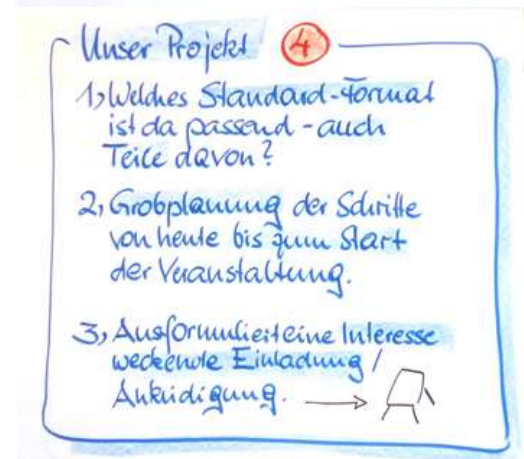 Unser Projekt 4
1, Welches Standard-Format
ist da passend - auch
Teile davon?
2, Grobplanung der Schritte
von heute bis zum Start
der Veranstaltung.
3, Ausformuliert eine Interesse
weckende Einladung /
Ankündigung.